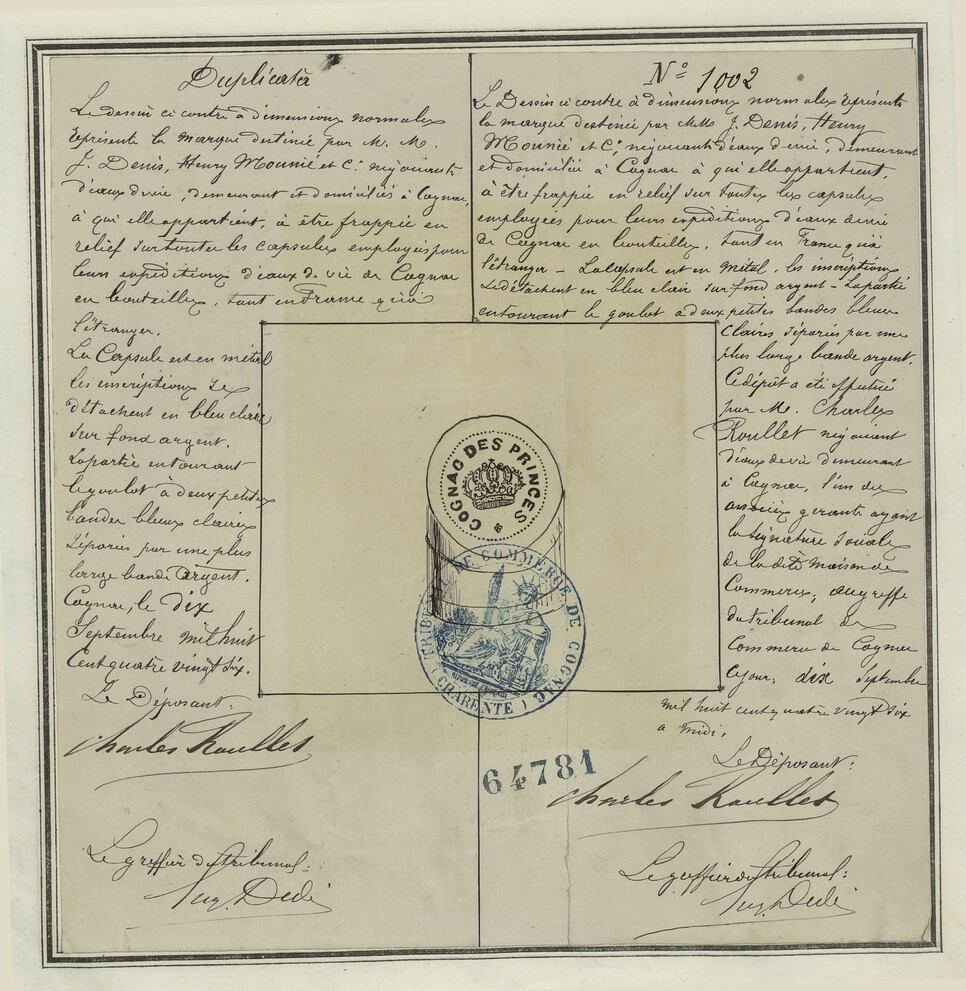 Duplicata
Le dessin ci contre à dimensions normales
représente la marque destinée par M. M.
J. Denis, Henry Mounié et Cie négociants
d'eaux de vie, demeurant et domiciliés à Cognac,
à qui elle appartient, à être frappée en
relief sur toutes les capsules employées pour
leurs expéditions d'eaux de vie de Cognac
en bouteilles, tant en France qu'à
l'étranger.
La Capsule est en métal
les inscriptions se
détachent en bleu clair
sur fond argent.
La partie entourant
le goulot à deux petites
bandes bleues claires
séparées par une plus
large bande argent.
Cognac, le dix
Septembre mil huit
Cent quatre vingt six.
Le Déposant:
Charles Roullet
Le greffier du tribunal:
Aug. Dedé
No 1002
Le Dessin ci contre à dimensions normales représente
la marque destinée par MM. J. Denis, Henry
Mounié et Cie, négociants d'eaux de vie, demeurant
et domiciliés à Cognac à qui elle appartient,
à être frappée en relief sur toutes les capsules
employées pour leurs expéditions d'eaux de vie
de Cognac en bouteilles, tant en France qu'à
l'étranger - La Capsule est en métal, les inscriptions
se détachent en bleu clair sur fond argent - La partie
entourant le goulot a deux petites bandes bleues
claires séparées par une
plus large bande argent.
Ce dépôt a été effectué
par M. Charles
Roullet négociant
d'eaux de vie demeurant
à Cognac, l'un des
associés gérants ayant
la signature sociale
de la dite maison de
Commerce, au greffe
du tribunal de
Commerce de Cognac
ce jour, dix Septembre
mil huit cent quatre vingt six
a midi.
Le Déposant:
Charles Roullet
Le greffier du tribunal:
Aug. Dedé
COGNAC DES PRINCES
TRIBUNAL DE COMMERCE DE COGNAC
(CHARENTE)
64781